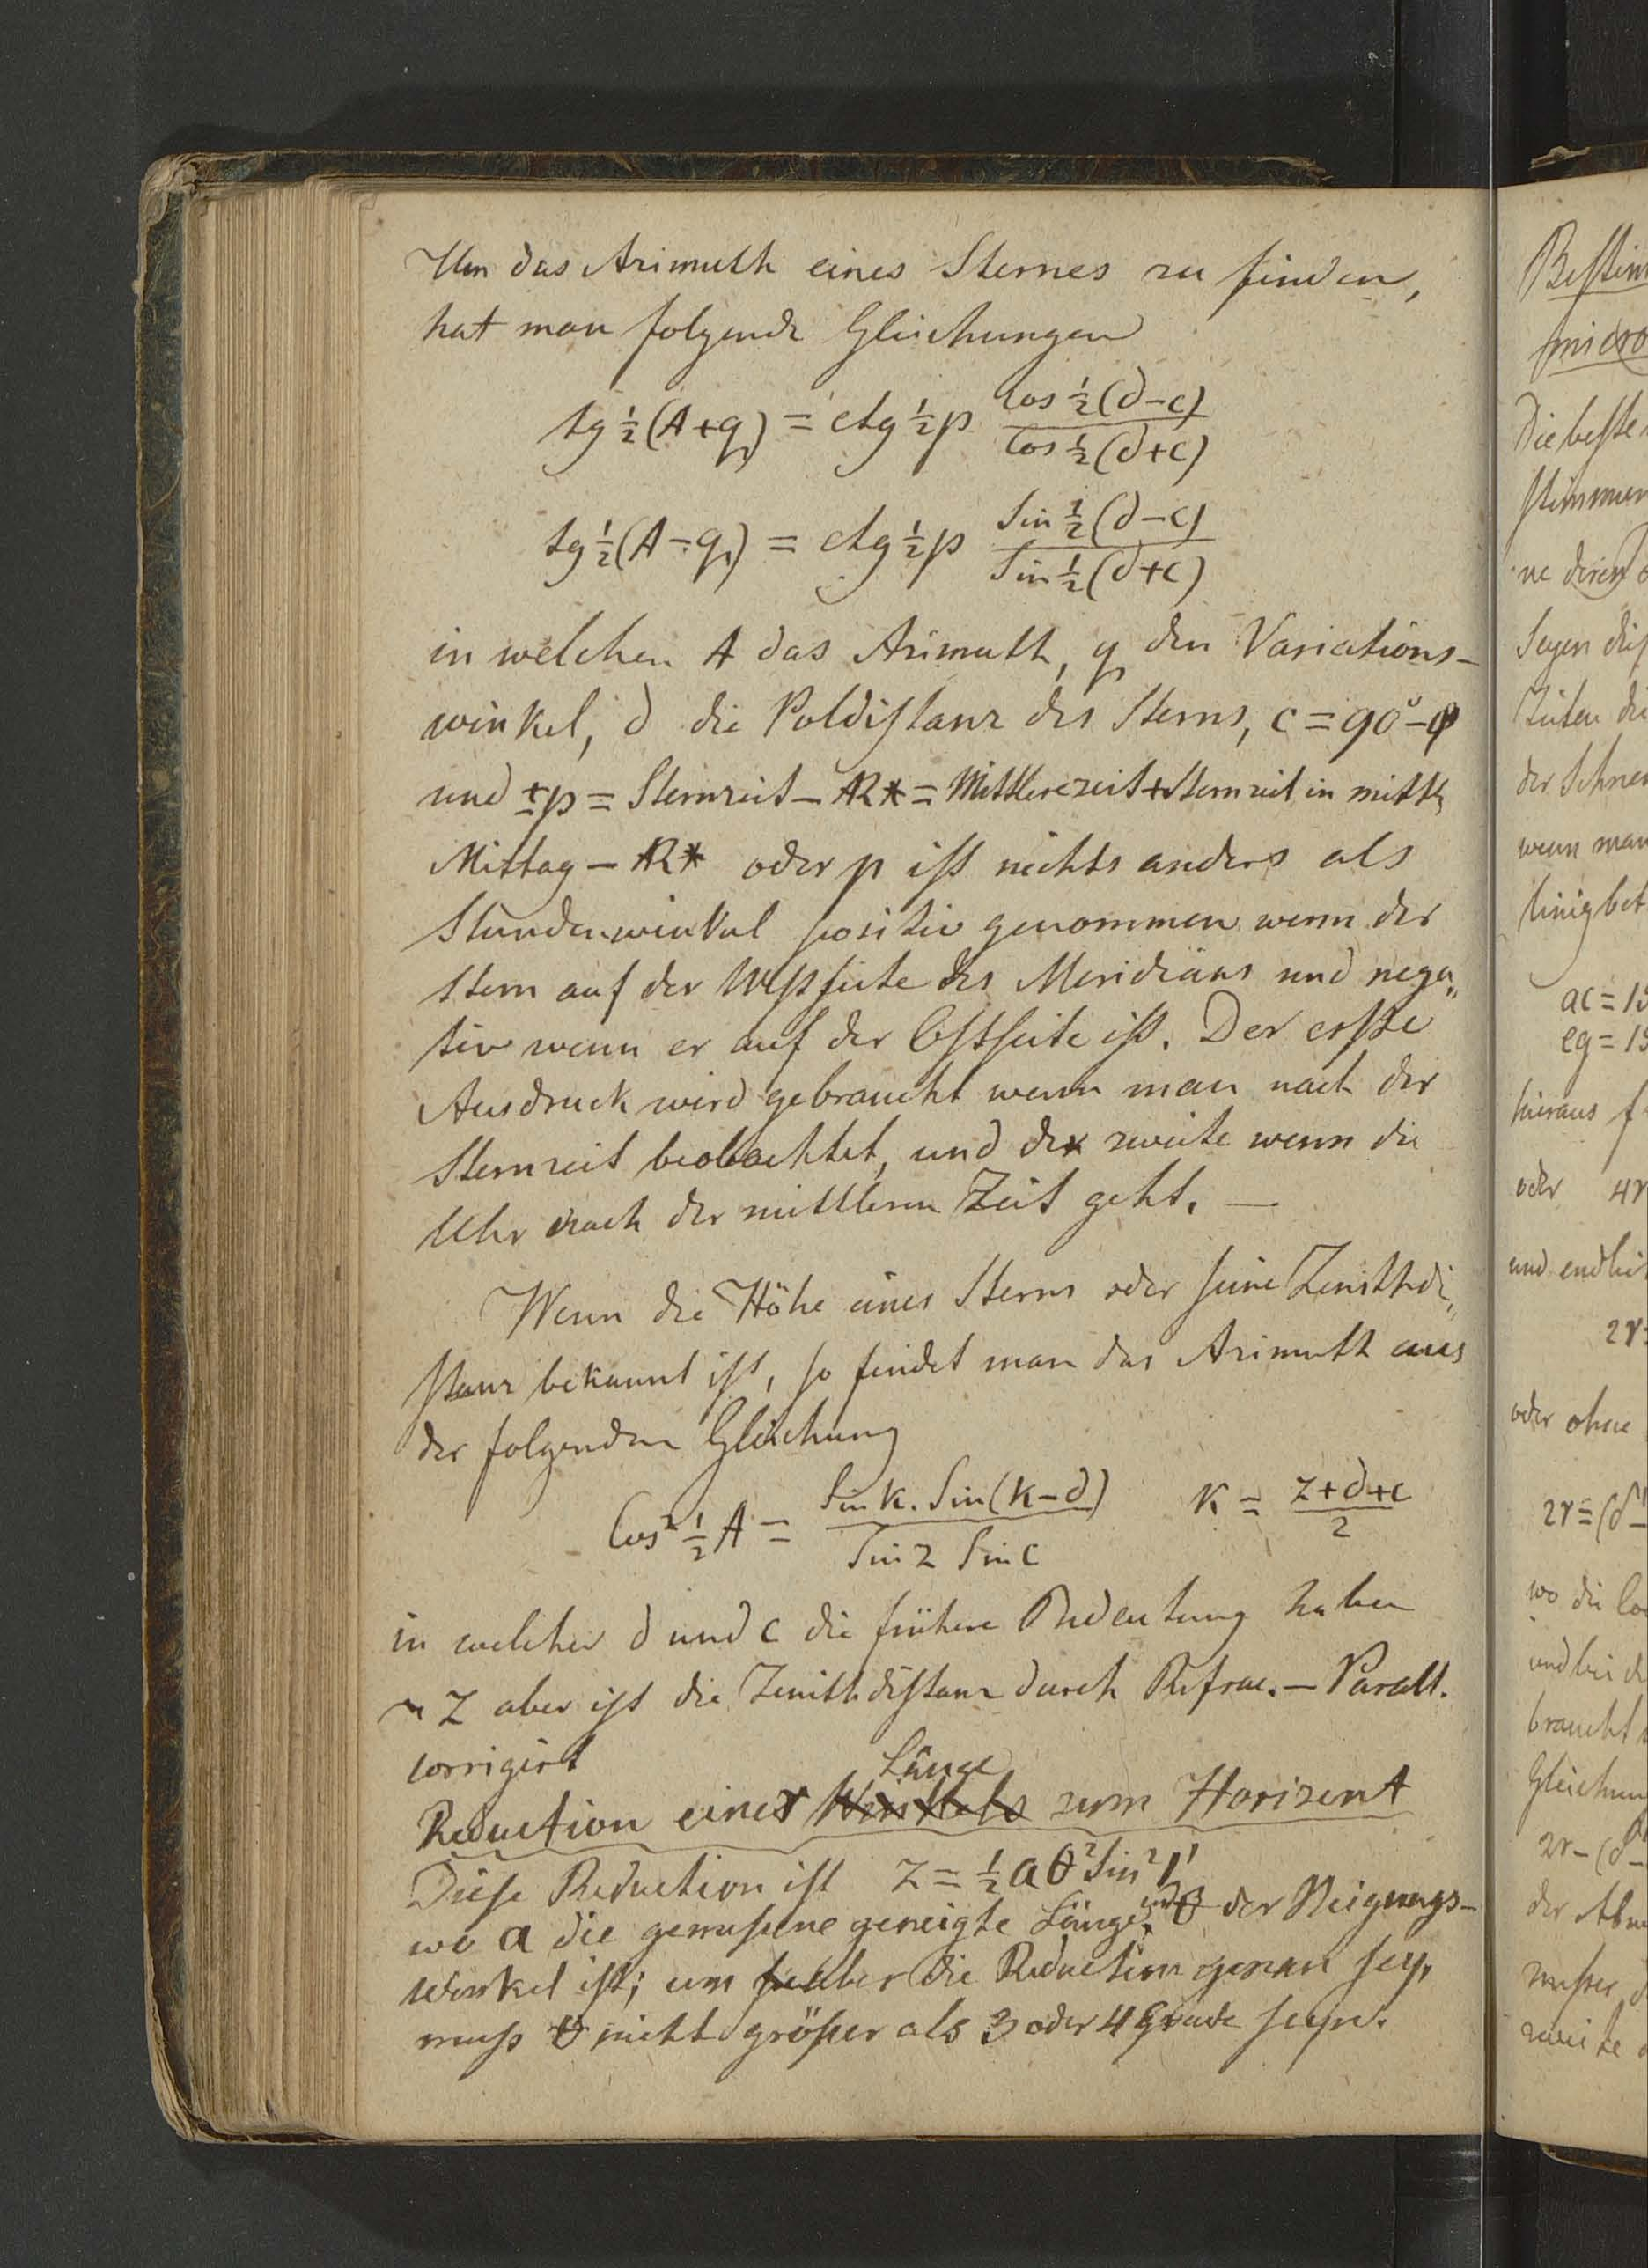 Um das Azimuth eines Sternes zu finden,
hat man folgende Gleichungen
tg ½(A+q) = ctg ½p cos ½(d−c) / cos ½(d+c)
tg ½(A−q) = ctg ½p Sin ½(d−c) / Sin ½(d+c)
in welchen A das Azimuth, q den Variations-
winkel, d die Poldistanz des Sterns, c = 90°−φ
und ±p = Sternzeit − AR* = Mittlere zeit + Sternzeit im mittl.
Mittag − AR* oder p ist nichts anders als
Stundenwinkel positiv genommen wenn der
Stern auf der Westseite des Meridians und nega„
tiv wenn er auf der Ostseite ist. Der erste
Ausdruck wird gebraucht wenn man nach der
Sternzeit beobachtet, und der zweite wenn die
Uhr nach der mittleren Zeit geht. —
Wenn die Höhe eines Sterns oder seine Zenithdi„
stanz bekannt ist, so findet man das Azimuth aus
der folgenden Gleichung
Cos² ½A = Sin k. Sin(k−d) / Sin z Sin c k = z+d+c / 2
in welcher d und c die frühere Bedeutung haben
z aber ist die Zenithdistanz durch Refrac. − Parall.
corrigirt
Länge
Reduction einer Winkels zum Horizont
Diese Reduction ist z = ½ a θ² Sin² 1'
wo a die gemessene geneigte Länge, und θ der Neigungs-
winkel ist; um aber die Reduction genau sey,
muss θ nicht größer als 3 oder 4 Grade seyn.
Bestim
micro
Die beste
stimmen
ne deren
Seyen die
Zeiten die
der Schne
wenn man
linig bet
ac = 15
eg = 15
hieraus f
oder 4r
und endlich
2r=
oder ohne
2r = (δ'−
wo die lo
und bei d
braucht
Gleichun
2r − (δ'−
der Abw
messer
zweite